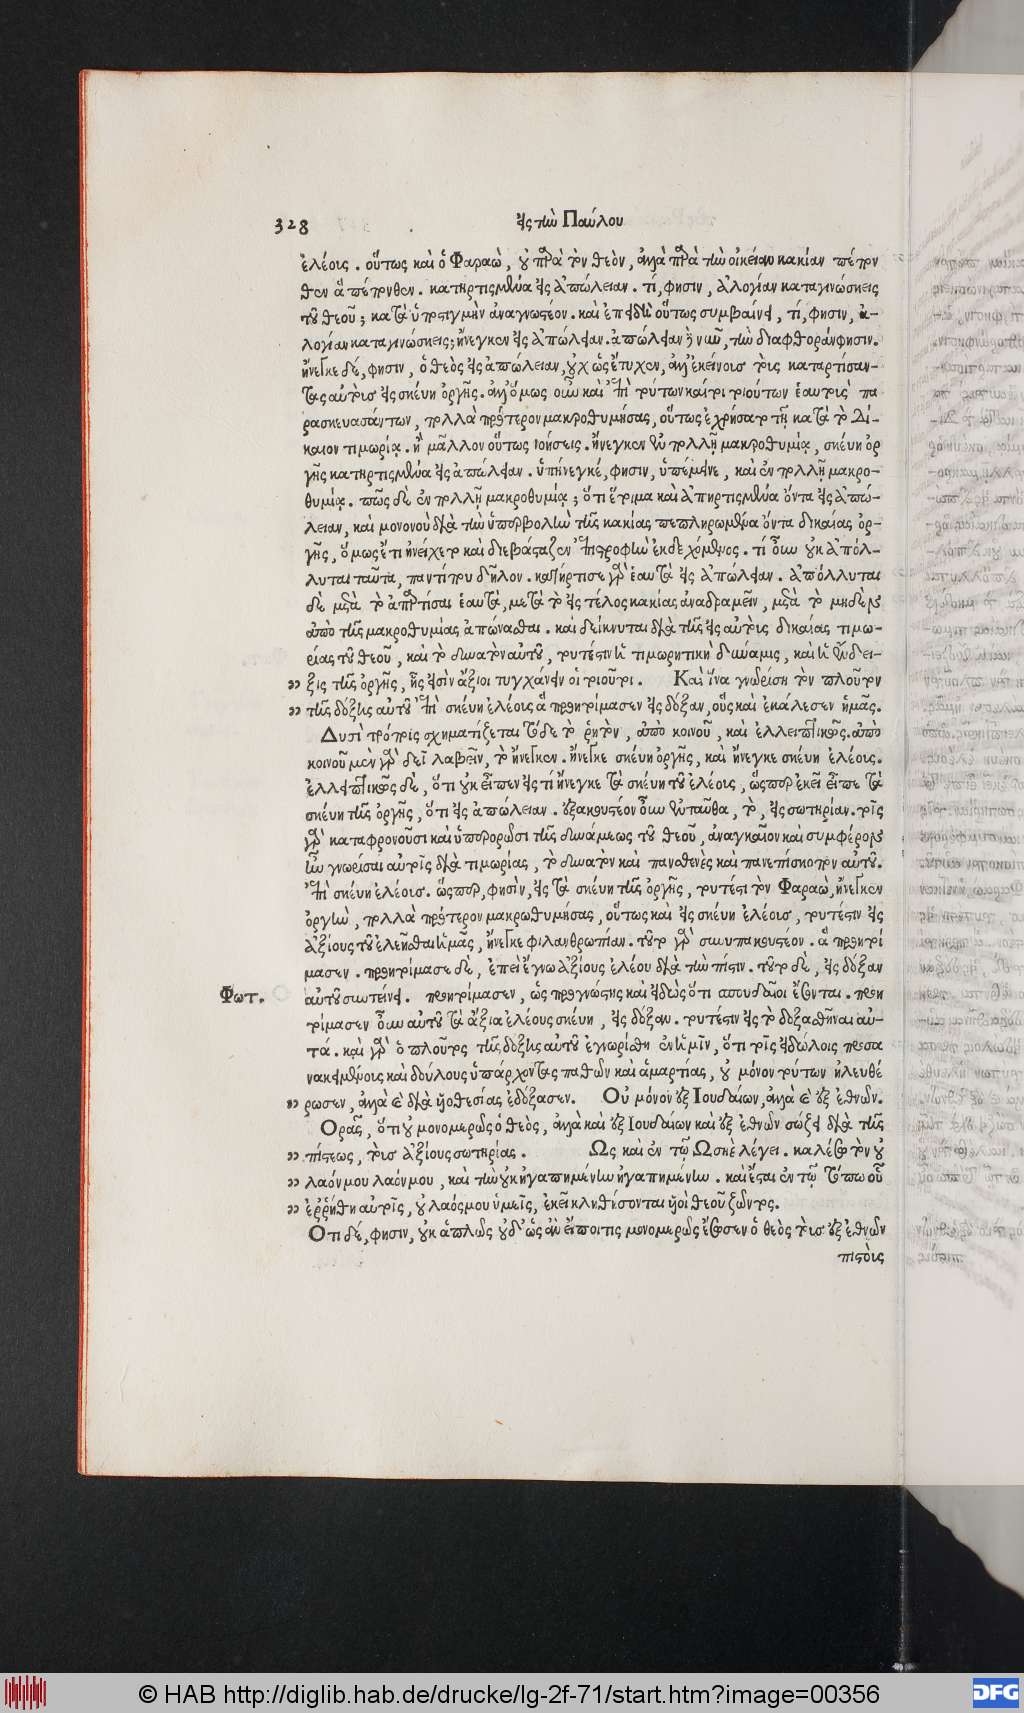 328 εἰς τὴν Παύλου
ἐλέοις. οὕτως καὶ ὁ Φαραὼ, οὐ παρὰ τὸν θεὸν, ἀλλὰ παρὰ τὴν οἰκείαν κακίαν πέπον
θεν ἃ πέπονθεν. κατηρτισμένα εἰς ἀπώλειαν. τί, φησιν, ἀλογίαν καταγινώσκεις
τοῦ θεοῦ; κατὰ ὑποστιγμὴν ἀναγνωστέον. καὶ ἐπειδὴ οὕτως συμβαίνει, τί, φησιν, ἀ-
λογίαν καταγινώσκεις; ἤνεγκεν εἰς ἀπώλειαν. ἀπώλειαν νῦν, τὴν διαφθορὰν φησιν.
ἤνεγκε δέ, φησιν, ὁ θεὸς εἰς ἀπώλειαν, οὐχ ὡς ἔτυχεν, ἀλλ' ἐκείνοις τοῖς καταρτίσαν-
τας αὐτοὺς εἰς σκεύη ὀργῆς. ἀλλ' ὅμως οὖν καὶ ἐπὶ τούτων καίτοι τοιούτων ἑαυτοὺς πα
ρασκευασάντων, πολλὰ πρότερον μακροθυμήσας, οὕτως ἐχρήσατο τῇ κατὰ τὸ Δί-
καιον τιμωρίᾳ. ἢ μᾶλλον οὕτως νοήσεις. ἤνεγκεν ἐν πολλῇ μακροθυμίᾳ, σκεύη ὀρ
γῆς κατηρτισμένα εἰς ἀπώλειαν. ὑπήνεγκέ, φησιν, ὑπέμεινε, καὶ ἐν πολλῇ μακρο-
θυμίᾳ. πῶς δὲ ἐν πολλῇ μακροθυμίᾳ; ὅτι ἕτοιμα καὶ ἀπηρτισμένα ὄντα εἰς ἀπώ-
λειαν, καὶ μονονοὺ διὰ τὴν ὑπερβολὴν τῆς κακίας πεπληρωμένα ὄντα δικαίας ὀρ-
γῆς, ὅμως ἔτι ἠνείχετο καὶ διεβάσταζεν ἐπιστροφὴν ἐκδεχόμενος. τί οὖν οὐκ ἀπόλ-
λυται ταῦτα, παντί που δῆλον. κατήρτισε γὰρ ἑαυτὰ εἰς ἀπώλειαν. ἀπόλλυται
δὲ μετὰ τὸ ἀπαρτίσαι ἑαυτὰ, μετὰ τὸ εἰς τέλος κακίας ἀναδραμεῖν, μετὰ τὸ μηδὲν
ἀπὸ τῆς μακροθυμίας ἀπώνασθαι. καὶ δείκνυται διὰ τῆς εἰς αὐτοὺς δικαίας τιμω-
ρίας τοῦ θεοῦ, καὶ τὸ δυνατὸν αὐτοῦ, τουτέστιν ἡ τιμωρητικὴ δύναμις, καὶ ἡ ἔνδει-
„ ξις τῆς ὀργῆς, ἧς εἰσὶν ἄξιοι τυγχάνειν οἱ τοιοῦτοι. Καὶ ἵνα γνωρίσῃ τὸν πλοῦτον
„ τῆς δόξης αὐτοῦ ἐπὶ σκεύη ἐλέοις ἃ προητοίμασεν εἰς δόξαν, οὓς καὶ ἐκάλεσεν ἡμᾶς.
Δυσὶ τρόποις σχηματίζεται τόδε τὸ ῥητὸν, ἀπὸ κοινοῦ, καὶ ἐλλειπτικῶς. ἀπὸ
κοινοῦ μὲν γὰρ δεῖ λαβεῖν, τὸ ἤνεγκεν. ἤνεγκε σκεύη ὀργῆς, καὶ ἤνεγκε σκεύη ἐλέοις.
ἐλλειπτικῶς δὲ, ὅτι οὐκ εἶπεν εἰς τί ἤνεγκε τὰ σκεύη τοῦ ἐλέοις, ὥσπερ ἐκεῖ εἶπε τὰ
σκεύη τῆς ὀργῆς, ὅτι εἰς ἀπώλειαν. ἐξακουστέον οὖν ἐνταῦθα, τὸ, εἰς σωτηρίαν. τοῖς
γὰρ καταφρονοῦσι καὶ ὑπερορῶσι τῆς δυνάμεως τοῦ θεοῦ, ἀναγκαῖον καὶ συμφέρον
ἦν γνωρίσαι αὐτοῖς διὰ τιμωρίας, τὸ δυνατὸν καὶ πανσθενὲς καὶ πανεπίσκοπον αὐτοῦ.
ἐπὶ σκεύη ἐλέοις. ὥσπερ, φησὶν, εἰς τὰ σκεύη τῆς ὀργῆς, τουτέστι τὸν Φαραὼ, ἤνεγκεν
ὀργὴν, πολλὰ πρότερον μακρωθυμήσας, οὕτως καὶ εἰς σκεύη ἐλέοις, τουτέστιν εἰς
ἀξίους τοῦ ἐλεηθῆναι ἡμᾶς, ἤνεγκε φιλανθρωπίαν. τοῦτο γὰρ συνυπακουστέον. ἃ προητοί
μασεν. προητοίμασε δὲ, ἐπεὶ ἔγνω ἀξίους ἐλέου διὰ τὴν πίστιν. τοῦτο δὲ, εἰς δόξαν
Φωτ. αὐτοῦ συντείνει. προητοίμασεν, ὡς προγνώστης καὶ εἰδὼς ὅτι σπουδαῖοι ἔσονται. προη
τοίμασεν οὖν αὐτοῦ τὰ ἄξια ἐλέους σκεύη, εἰς δόξαν. τουτέστιν εἰς τὸ δοξασθῆναι αὐ-
τά. καὶ γὰρ ὁ πλοῦτος τῆς δόξης αὐτοῦ ἐγνωρίσθη ἐν ἡμῖν, ὅτι τοῖς εἰδώλοις προσα
νακειμένοις καὶ δούλους ὑπάρχοντας παθῶν καὶ ἁμαρτίας, οὐ μόνον τούτων ἠλευθέ
„ ρωσεν, ἀλλὰ καὶ διὰ υἱοθεσίας ἐδόξασεν. Οὐ μόνον ἐξ Ἰουδαίων, ἀλλὰ καὶ ἐξ ἐθνῶν.
Ὁρᾷς, ὅτι οὐ μονομερῶς ὁ θεὸς, ἀλλὰ καὶ ἐξ Ἰουδαίων καὶ ἐξ ἐθνῶν σώζει διὰ τῆς
„ πίστεως, τοὺς ἀξίους σωτηρίας. Ὡς καὶ ἐν τῷ Ὡσηὲ λέγει. καλέσω τὸν οὐ
„ λαόν μου λαόν μου, καὶ τὴν οὐκ ἠγαπημένην ἠγαπημένην. καὶ ἔσται ἐν τῷ τόπῳ οὗ
„ ἐῤῥήθη αὐτοῖς, οὐ λαός μου ὑμεῖς, ἐκεῖ κληθήσονται υἱοὶ θεοῦ ζῶντος.
Ὅτι δέ, φησιν, οὐκ ἁπλῶς οὐδ' ὡς ἂν εἴποι τις μονομερῶς ἔσωσεν ὁ θεὸς τοὺς ἐξ ἐθνῶν
πιστοὺς
© HAB http://diglib.hab.de/drucke/lg-2f-71/start.htm?image=00356
DFG